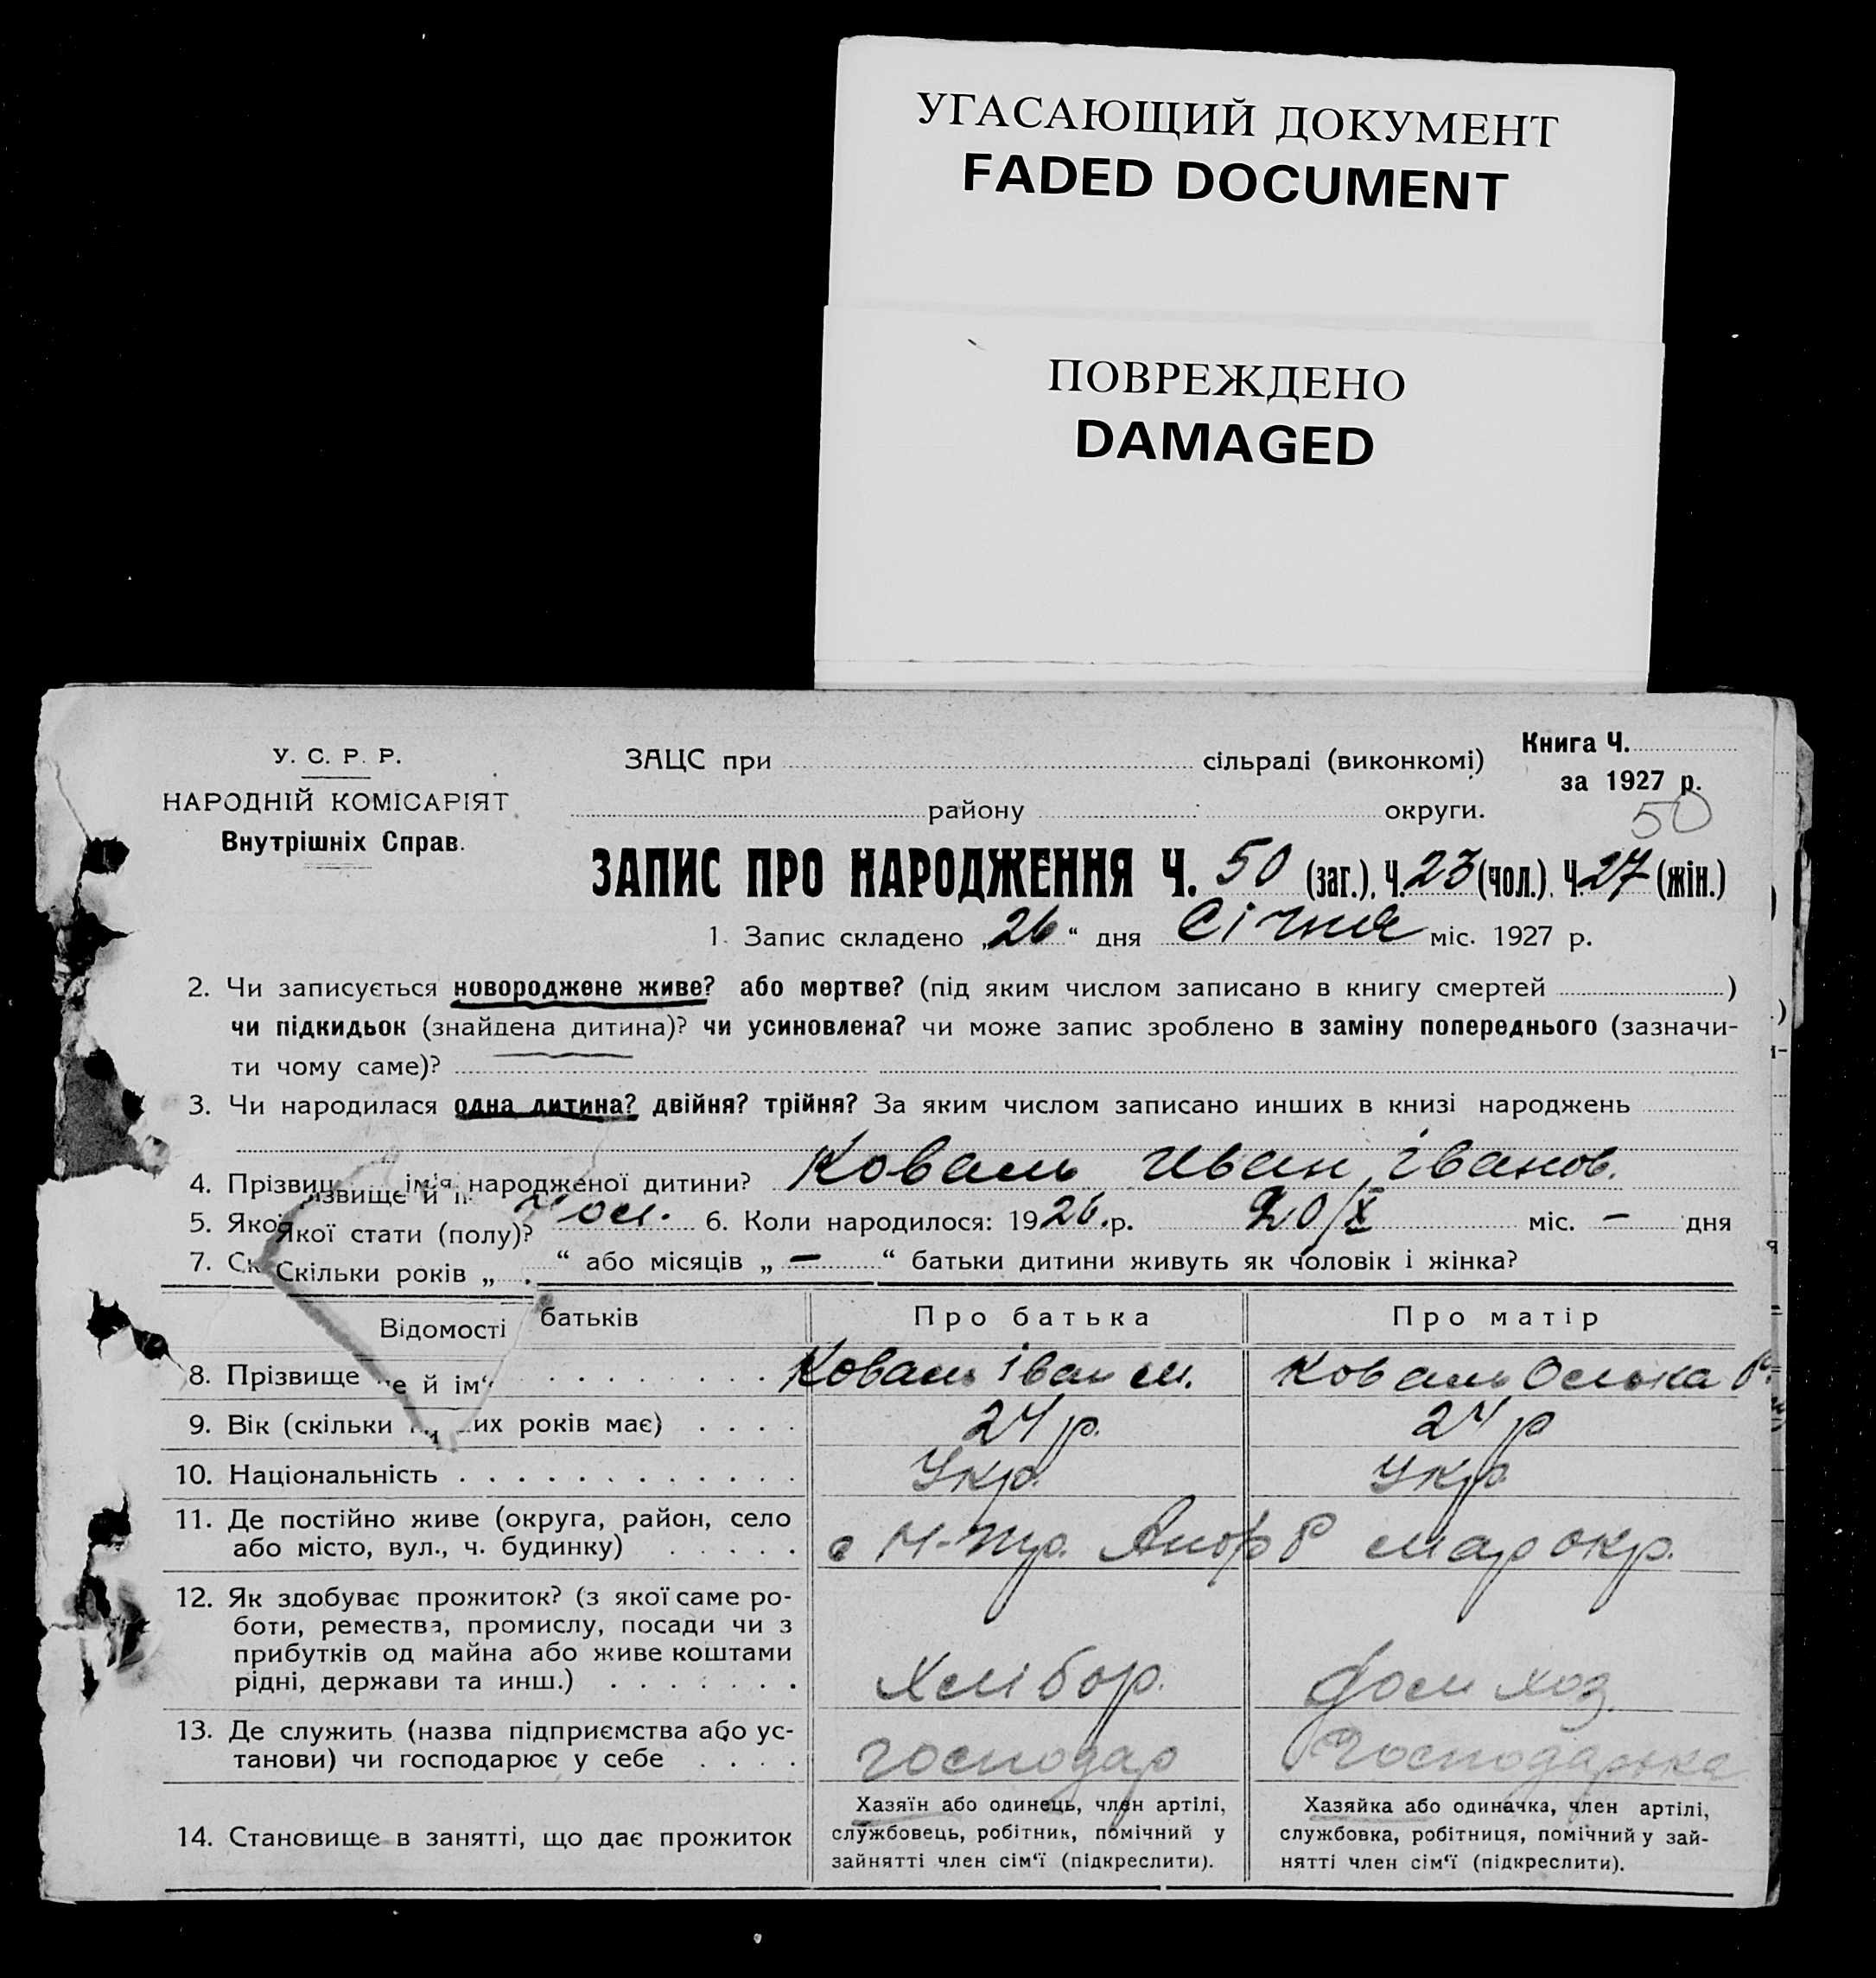 УГАСАЮЩИЙ ДОКУМЕНТ
FADED DOCUMENT
ПОВРЕЖДЕНО
DAMAGED
У. С. Р. Р.
НАРОДНІЙ КОМІСАРІЯТ
Внутрішніх Справ.
ЗАЦС при сільраді (виконкомі)
Книга Ч.
за 1927 р.
району округи.
50
ЗАПИС ПРО НАРОДЖЕННЯ Ч. 50 (заг.), Ч. 23 (чол.), Ч. 27 (жін.)
1. Запис складено „26“ дня Січня міс. 1927 р.
2. Чи записується новороджене живе? або мертве? (під яким числом записано в книгу смертей )
чи підкидьок (знайдена дитина)? чи усиновлена? чи може запис зроблено в заміну попереднього (зазначи-
ти чому саме)?
3. Чи народилася одна дитина? двійня? трійня? За яким числом записано инших в книзі народжень
4. Прізвищ ім'я народженої дитини? Коваль Иван Іванов.
ізвище й
5. Якої Якої стати (полу)? Чол. 6. Коли народилося: 1926.р. 20/X міс. — дня
7. Ск Скільки років „ “ або місяців „ — “ батьки дитини живуть як чоловік і жінка?
Відомості батьків
Про батька
Про матір
8. Прізвище е й ім‘ Коваль Іван М. Коваль Олька
9. Вік (скільки их років має) 24 р. 24 р
10. Національність Укр. Укр.
11. Де постійно живе (округа, район, село
або місто, вул., ч. будинку) с Н-Тр. Р мар окр.
12. Як здобуває прожиток? (з якої саме ро-
боти, ремества, промислу, посади чи з
прибутків од майна або живе коштами
рідні, держави та инш.) Хлібор. дом хоз.
13. Де служить (назва підприємства або ус-
танови) чи господарює у себе господар Господарька
14. Становище в занятті, що дає прожиток
Хазяїн або одинець, член артілі,
службовець, робітник, помічний у
зайнятті член сім‘ї (підкреслити).
Хазяйка або одиначка, член артілі,
службовка, робітниця, помічний у зай-
нятті член сім‘ї (підкреслити).